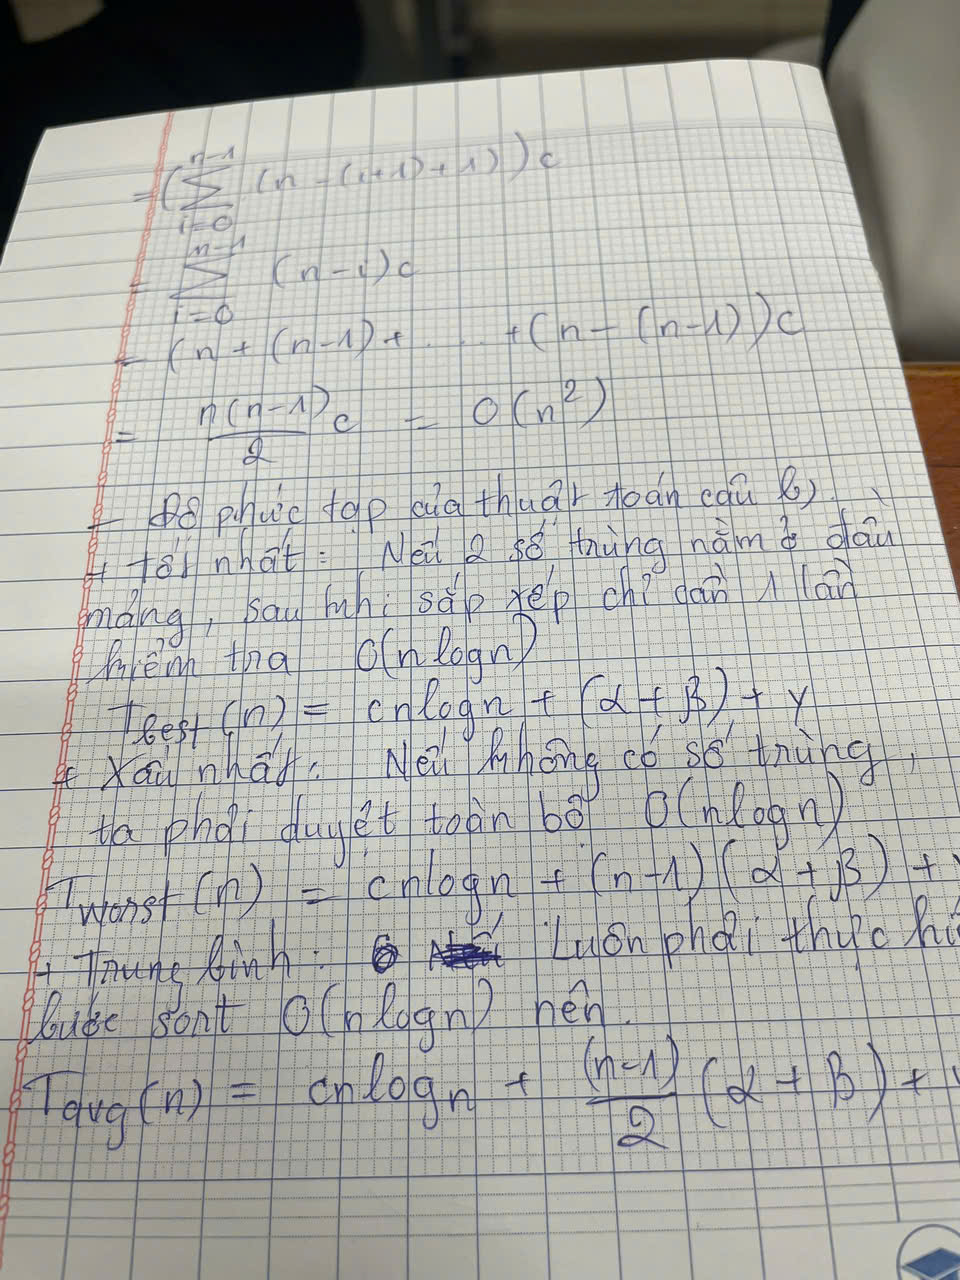 = (∑_{i=0}^{n-1} (n - (i+1) + 1)) c
= ∑_{i=0}^{n-1} (n-i)c
= (n + (n-1) + .... + (n - (n-1))c
= n(n-1)/2 c = O(n²)
- Độ phức tạp của thuật toán câu b).
+ tốt nhất: Nếu 2 số trùng nằm ở đầu
mảng, sau khi sắp xếp chỉ cần 1 lần
kiểm tra O(nlogn)
T_best(n) = cnlogn + (α + β) + γ
+ Xấu nhất: Nếu không có số trùng,
ta phải duyệt toàn bộ O(nlogn)
T_worst(n) = cnlogn + (n-1)(α + β) +
+ Trung bình: Luôn phải thực
bước sort O(nlogn) nên.
T_avg(n) = cnlogn + (n-1)/2 (α + β) +